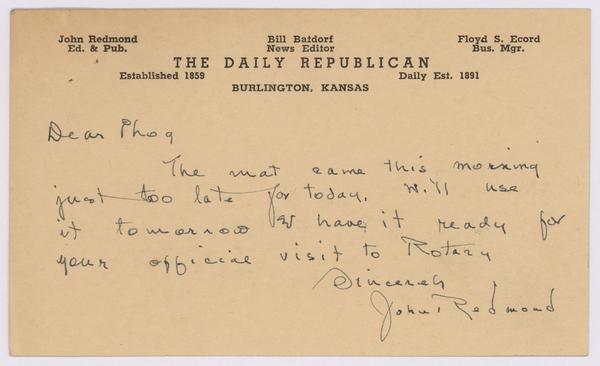 John Redmond
Ed. & Pub.
Bill Batdorf
News Editor
Floyd S. Ecord
Bus. Mgr.
THE DAILY REPUBLICAN
Established 1859
Daily Est. 1891
BURLINGTON, KANSAS
Dear Phog
The mat came this morning
just too late for today. Will use
it tomorrow & have it ready for
your official visit to Rotary
Sincerely
John Redmond